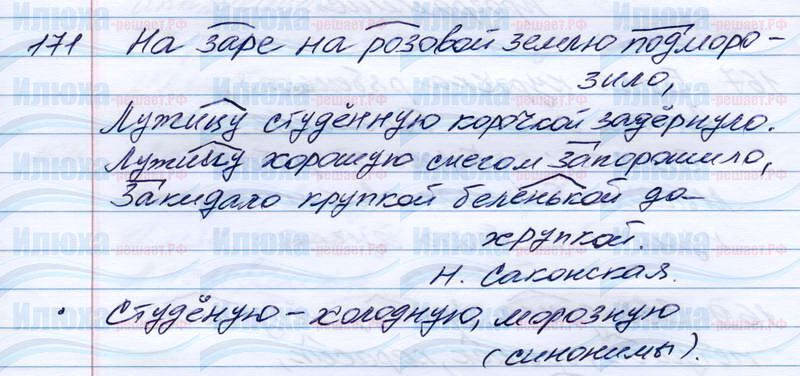 171 На заре на розовой землю подморо-
зило,
Лужицу студённую корочкой задёрнуло.
Лужицу хорошую снегом запорошило,
Закидало крупкой беленькой да
хрупкой.
Н. Саконская.
• Студёную – холодную, морозную
(синонимы).